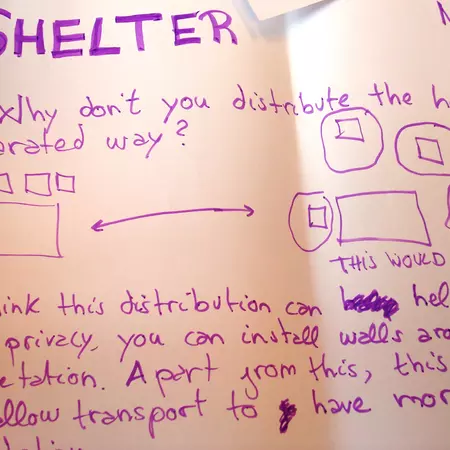 SHELTER
Why don't you distribute the h
erated way?
THIS WOULD
ink this distribution can hel
privacy, you can install walls aro
etation. Apart from this, this
allow transport to have mor